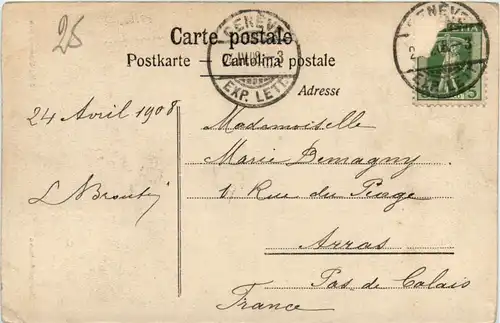 25
Carte postale
Postkarte — Cartolina postale
Adresse
GENÈVE
EXP. LETT.
GENÈVE
5
24 Avril 1908
Mademoiselle
Marie Demagny
1 Rue du
Arras
Pas de Calais
France